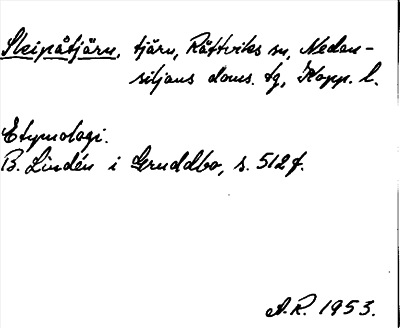 Sleipåtjärn, tjärn, Rättviks sn, Nedan-
siljans doms. tg, Kopp. l.
Etymologi.
B. Lindén i Gruddbo, s. 512 f.
A.R. 1953.